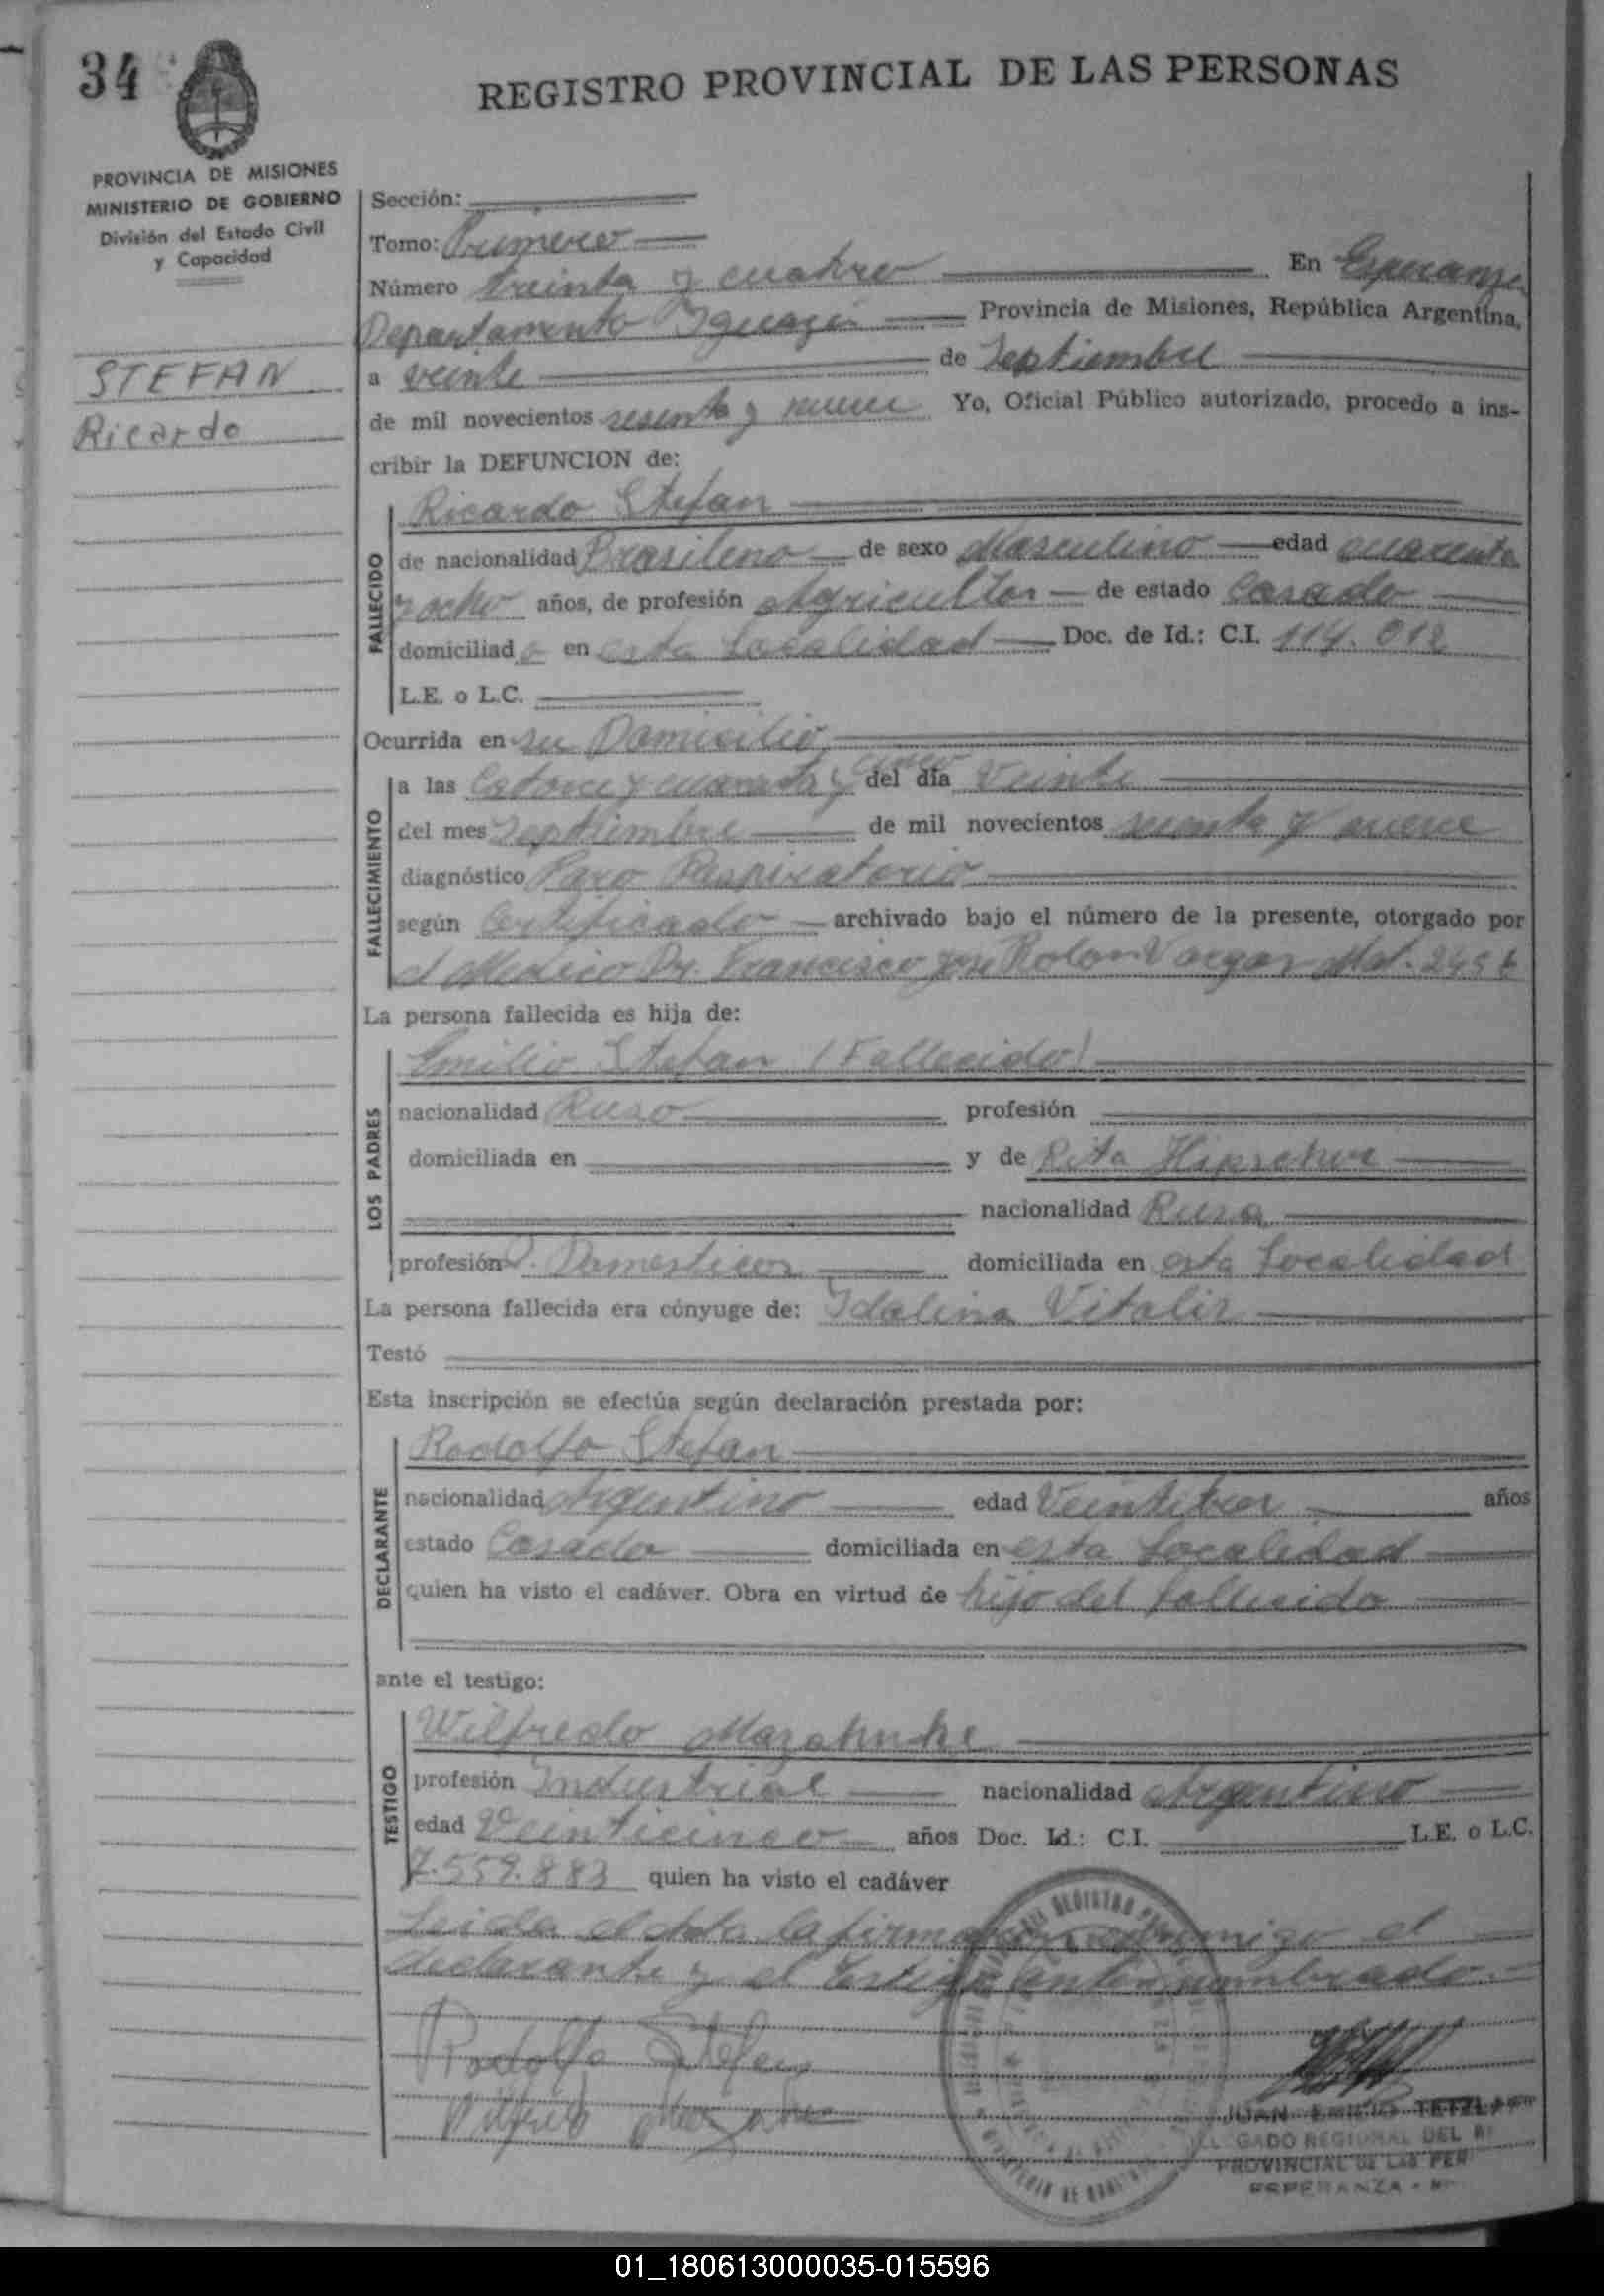 34
REGISTRO PROVINCIAL DE LAS PERSONAS
PROVINCIA DE MISIONES
MINISTERIO DE GOBIERNO
División del Estado Civil
y Capacidad
STEFAN
Ricardo
Sección:
Tomo: Primero
Número treinta y cuatro En Esperanza
Departamento Iguazú Provincia de Misiones, República Argentina,
a veinte de Septiembre
de mil novecientos sesenta y nueve Yo, Oficial Público autorizado, procedo a ins-
cribir la DEFUNCION de:
FALLECIDO
Ricardo Stefan
de nacionalidad Brasileno de sexo Masculino edad cuarenta
y ocho años, de profesión Agricultor de estado Casado
domiciliad o en esta Localidad Doc. de Id.: C.I. 114.012
L.E. o L.C.
Ocurrida en su Domicilio
FALLECIMIENTO
a las Catorce y cuarenta y cinco del día Veinte
del mes Septiembre de mil novecientos sesenta y nueve
diagnóstico Paro Respiratorio
según Certificado archivado bajo el número de la presente, otorgado por
el Medico Dr. Francisco José Rolon Vargas Mat.
La persona fallecida es hija de:
LOS PADRES
Emilio Stefan (Fallecido)
nacionalidad Ruso profesión
domiciliada en y de Rita
nacionalidad Rusa
profesión Q. Domesticos domiciliada en esta Localidad
La persona fallecida era cónyuge de: Idalina
Testó
Esta inscripción se efectúa según declaración prestada por:
DECLARANTE
Rodolfo Stefan
nacionalidad Argentino edad Veintitres años
estado Casado domiciliada en esta Localidad
quien ha visto el cadáver. Obra en virtud de hijo del fallecido
ante el testigo:
TESTIGO
Wilfredo
profesión Industrial nacionalidad Argentino
edad Veinticinco años Doc. Id.: C.I. L.E. o L.C.
7.559.883 quien ha visto el cadáver
Leida el Acta la firman conmigo el
declarante y el testigo antes nombrado.
Rodolfo Stefan
Wilfredo
JUAN EMILIO TETZLAFF
GADO REGIONAL DEL R
PROVINCIAL DE LAS PER
ESPERANZA
01_180613000035-015596